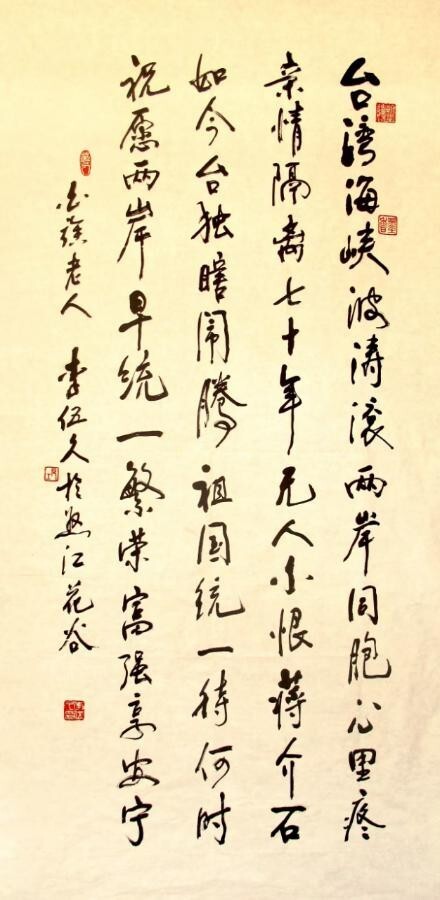 台湾海峡波涛滚两岸同胞心里疼
亲情隔离七十年无人不恨蒋介石
如今台独瞎闹腾祖国统一待何时
祝愿两岸早统一繁荣富强享安宁
老人 李伍久于怒江花谷